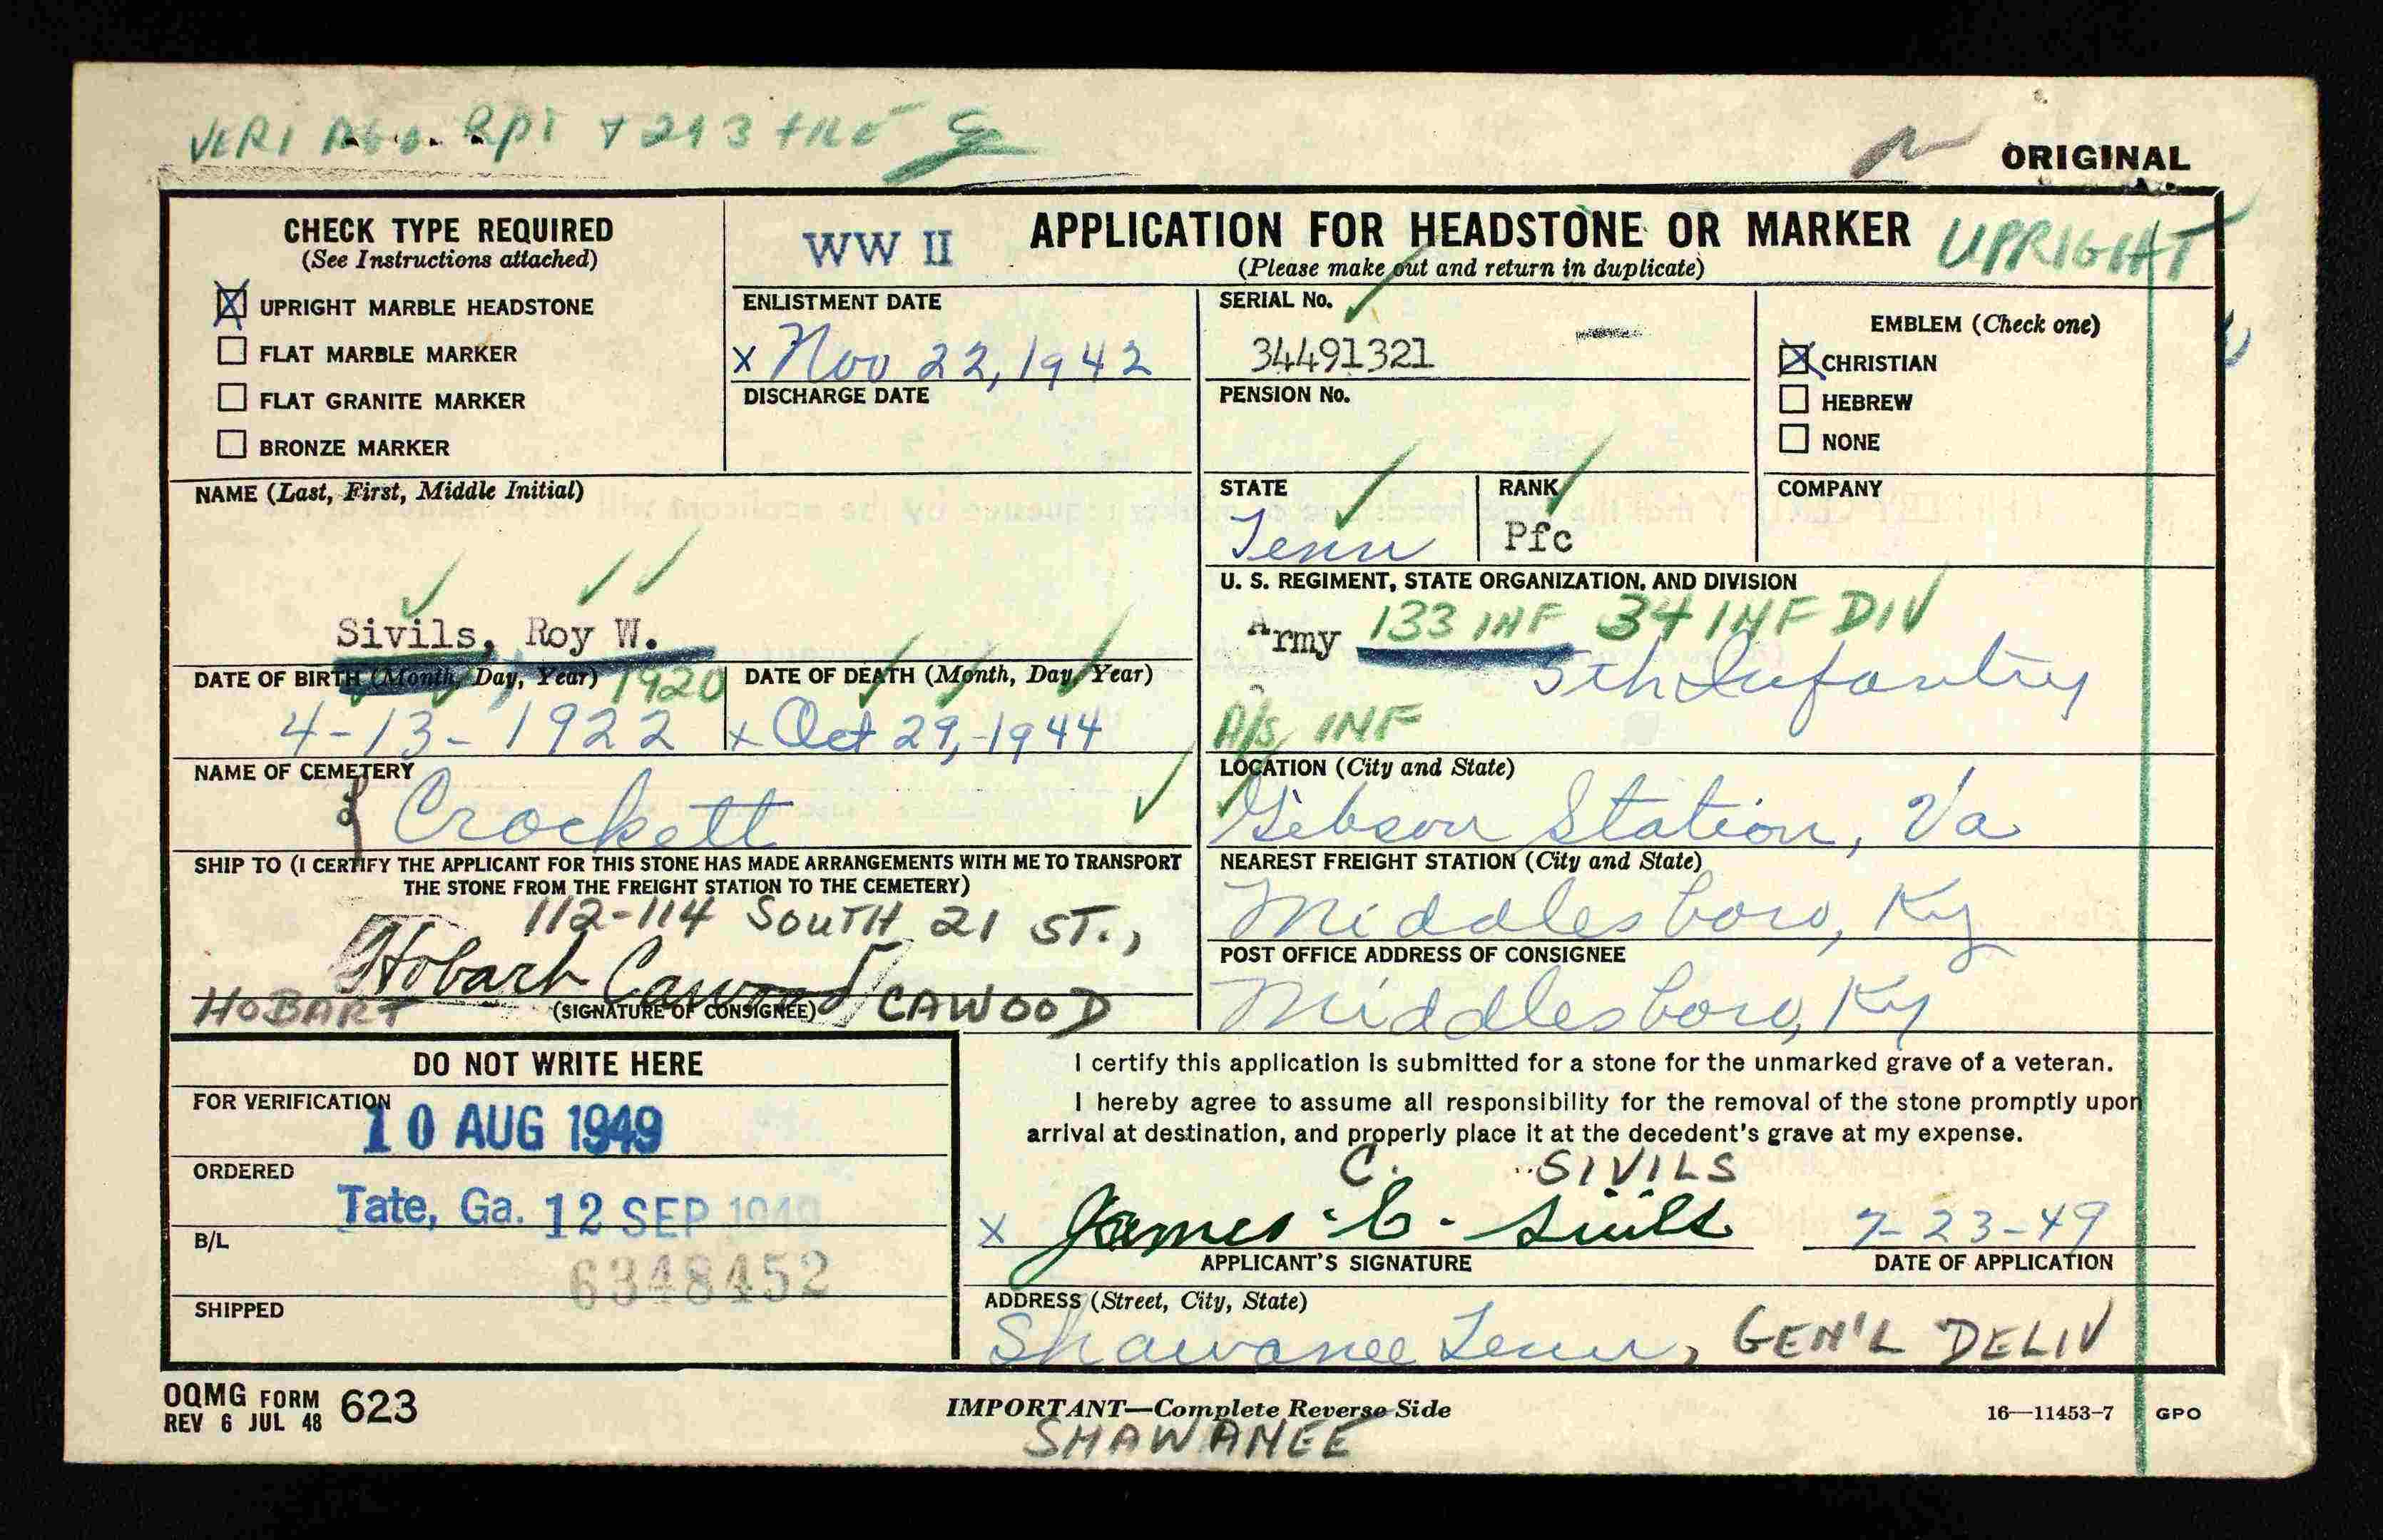 VERI Rpt + 293 FILE
ORIGINAL
CHECK TYPE REQUIRED
(See Instructions attached)
☒ UPRIGHT MARBLE HEADSTONE
☐ FLAT MARBLE MARKER
☐ FLAT GRANITE MARKER
☐ BRONZE MARKER
WW II
APPLICATION FOR HEADSTONE OR MARKER UPRIGHT
(Please make out and return in duplicate)
ENLISTMENT DATE
x Nov 22, 1942
DISCHARGE DATE
SERIAL No.
34491321
PENSION No.
EMBLEM (Check one)
☒ CHRISTIAN
☐ HEBREW
☐ NONE
NAME (Last, First, Middle Initial)
Sivils, Roy W.
STATE
Tenn
RANK
Pfc
COMPANY
U. S. REGIMENT, STATE ORGANIZATION, AND DIVISION
Army 133 INF 34 INF DIV
5th Infantry
A/S INF
DATE OF BIRTH (Month, Day, Year) 1920
4-13-1922
DATE OF DEATH (Month, Day, Year)
x Oct 29,-1944
NAME OF CEMETERY
Crockett
LOCATION (City and State)
Gibson Station, Va
SHIP TO (I CERTIFY THE APPLICANT FOR THIS STONE HAS MADE ARRANGEMENTS WITH ME TO TRANSPORT
THE STONE FROM THE FREIGHT STATION TO THE CEMETERY)
112-114 SOUTH 21 ST.,
Hobart Cawood
HOBART (SIGNATURE OF CONSIGNEE) CAWOOD
NEAREST FREIGHT STATION (City and State)
Middlesboro, Ky
POST OFFICE ADDRESS OF CONSIGNEE
Middlesboro, Ky
DO NOT WRITE HERE
FOR VERIFICATION
10 AUG 1949
ORDERED
Tate, Ga. 12 SEP 1949
B/L
6348452
SHIPPED
I certify this application is submitted for a stone for the unmarked grave of a veteran.
I hereby agree to assume all responsibility for the removal of the stone promptly upon
arrival at destination, and properly place it at the decedent's grave at my expense.
C. SIVILS
x James C. Sivils 7-23-49
APPLICANT'S SIGNATURE DATE OF APPLICATION
ADDRESS (Street, City, State)
Shawanee Tenn, GEN'L DELIV
OQMG FORM 623
REV 6 JUL 48
IMPORTANT—Complete Reverse Side
16—11453-7 GPO
SHAWANEE